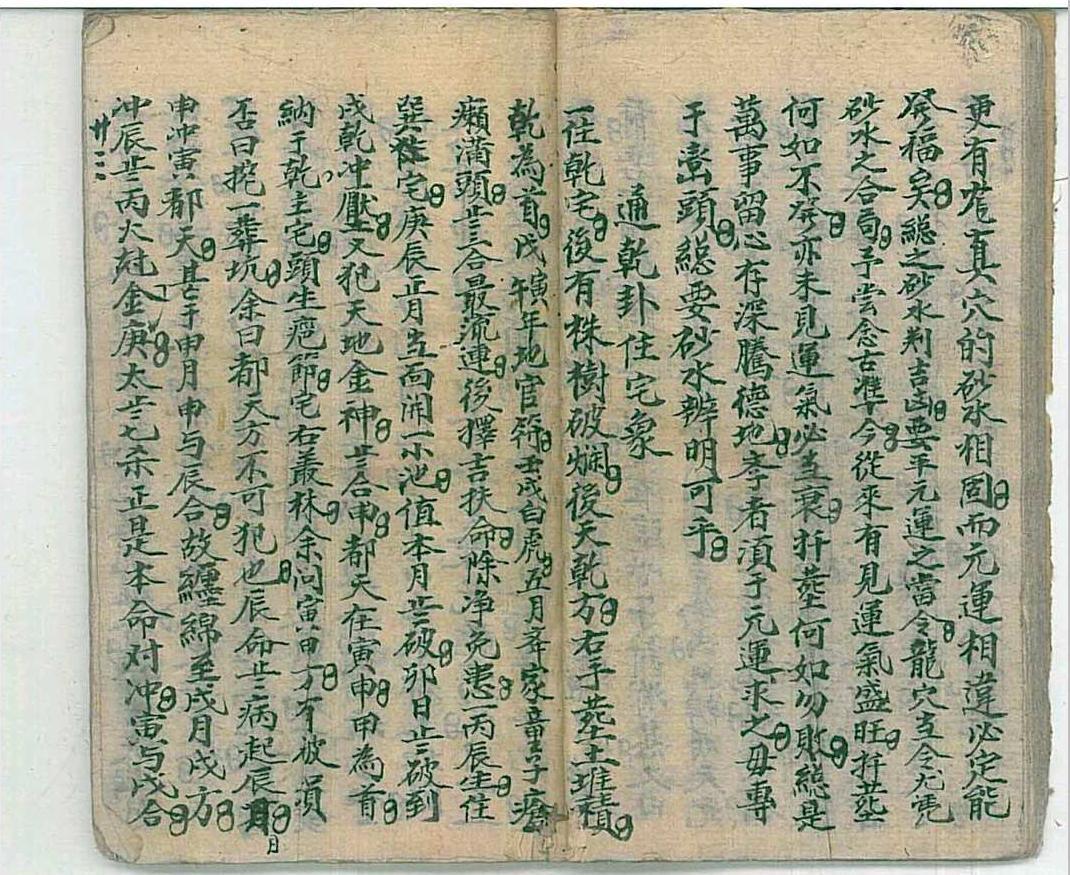 更有著真穴的砂水相固而元運相違必定能
發福矣総之砂水判吉凶要乎元運之當令龍穴当令尤宪
砂水之合局予尝念古準今從來有見運氣盛旺扦塟
何如不發亦未見運氣必当衰扦塟何如勿敗総是
萬事留心存深騰德地李者湏于元運求之毋專
于峦頭総要砂水辨明可乎
通乾卦住宅象
一住乾宅後有株樹破爛後天乾方右手塟土堆積
乾為首戊寅年地官符壬戌白虎五月夆家童子瘡
癩滿頭三合最流連後擇吉扶命除净免患一丙辰生住
巽宅庚辰年月当面開一小池值本月破卯日破到
戌乾冲壓又犯天地金神三合申都天在寅申甲為首
納于乾主宅頭生瘡節宅右叢林余问寅甲方有被损
否曰挖一葬坑余曰都天方不可犯也辰命病起辰月
申冲寅都天甚于申月申与辰合故纏綿至戌月戌方
冲辰丙火尅金庚太七杀正是本命对冲寅与戌合
廿二